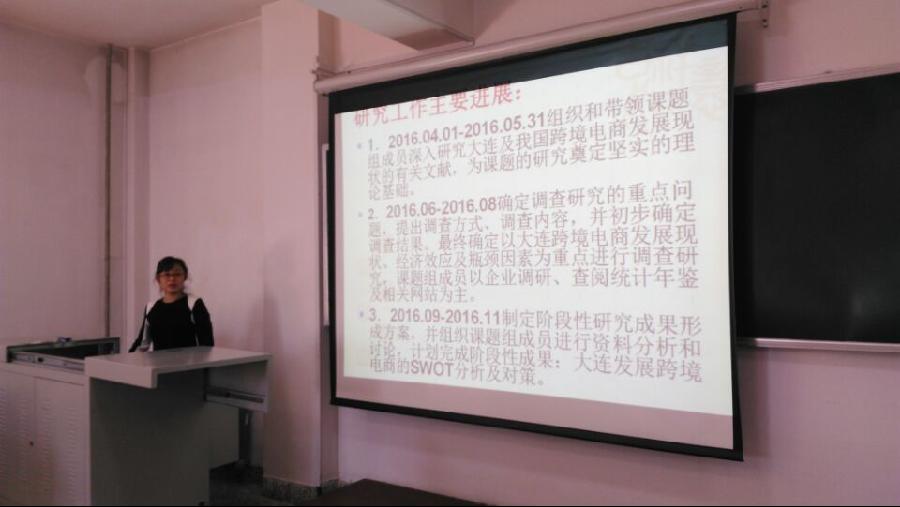 研究工作主要进展：
1．2016.04.01-2016.05.31组织和带领课题
组成员深入研究大连及我国跨境电商发展现
状的有关文献，为课题的研究奠定坚实的理
论基础。
2．2016.06-2016.08确定调查研究的重点问
题，提出调查方式、调查内容，并初步确定
调查结果、最终确定以大连跨境电商发展现
状、经济效应及瓶颈因素为重点进行调查研
究，课题组成员以企业调研、查阅统计年鉴
及相关网站为主。
3．2016.09-2016.11制定阶段性研究成果形
成方案，并组织课题组成员进行资料分析和
讨论，计划完成阶段性成果：大连发展跨境
电商的SWOT分析及对策。